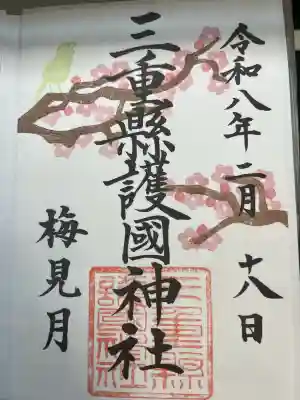 令和八年二月十八日
三重縣護國神社
梅見月